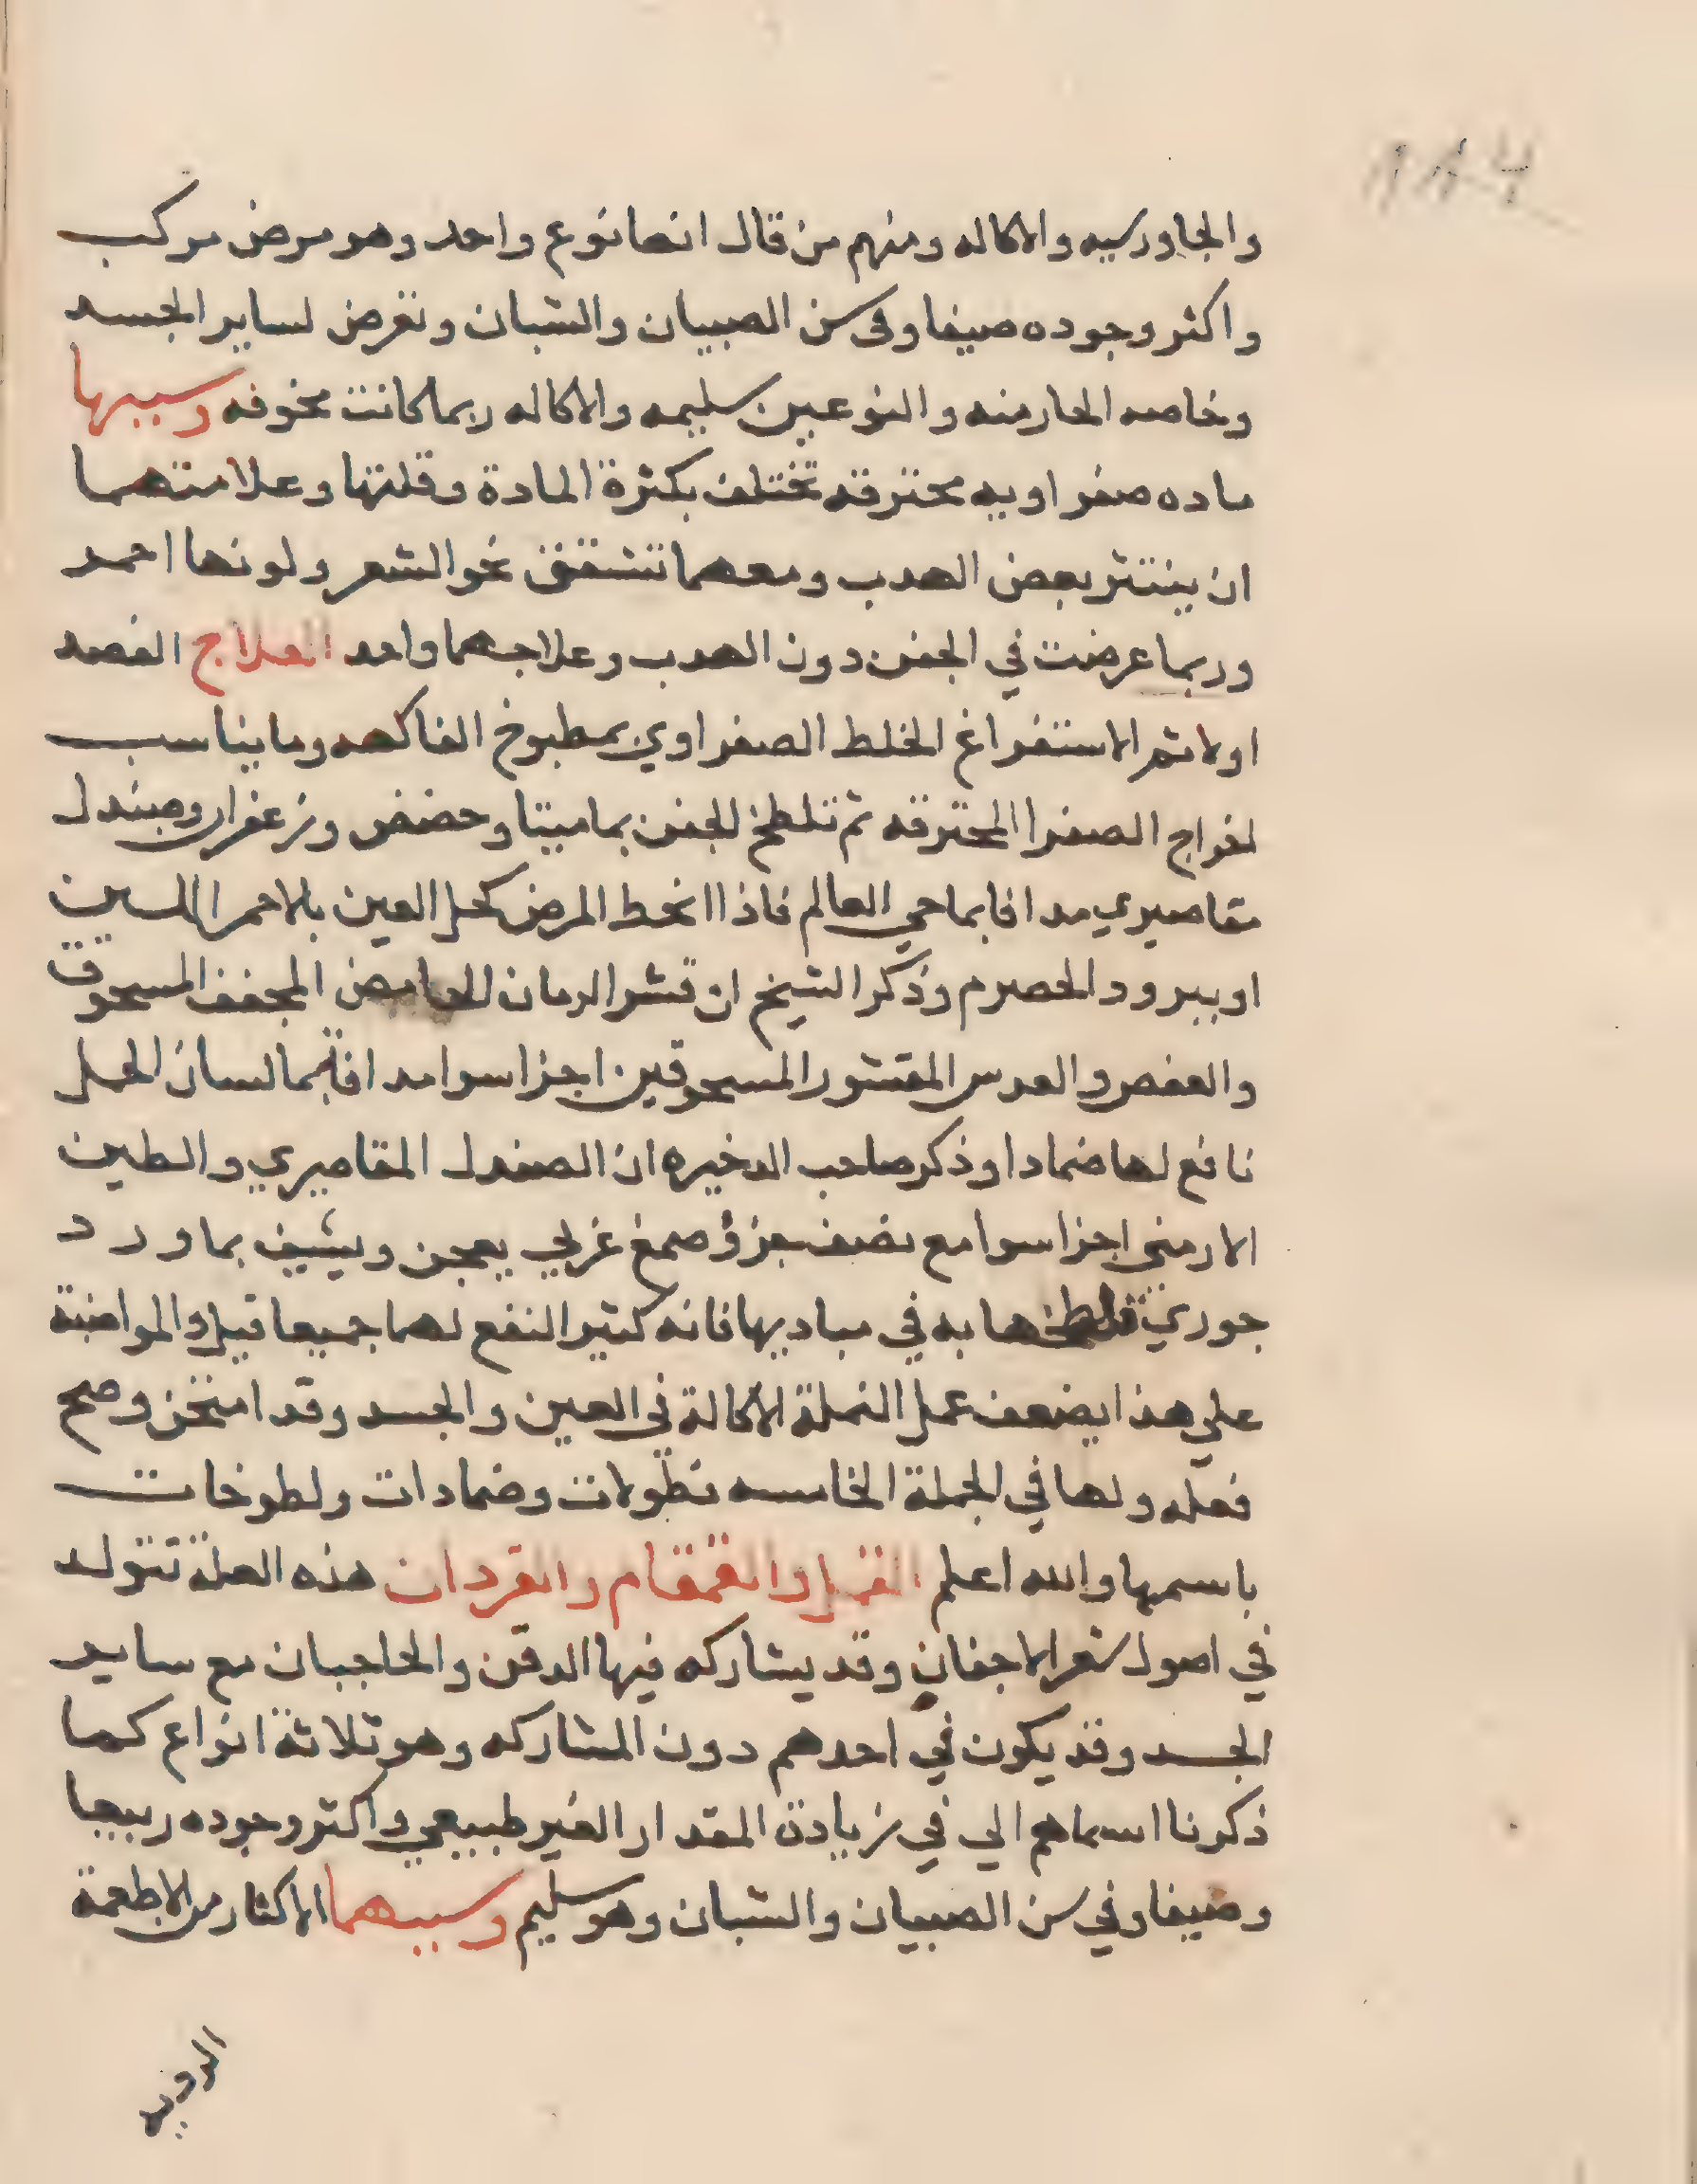 والجاورسيه والاكاله ومنهم من قال انها نوع واحد وهو مرض مركب
واكثر وجوده صيفا وفى سن الصبيان والشبان وتعرض لساير الجسد
وخاصه الحار منه والنوعين سليمه والاكاله ربما كانت مخوفه وسببها
ماده صفراويه محترقه تختلف بكثرة المادة وقلتها وعلامتهما
ان ينتثر بعض الهدب ومعهما تشقق نحو الشعر ولونها احمر
وربما عرضت في الجفن دون الهدب وعلاجهما واحد العلاج الفصد
اولا ثم الاستفراغ الخلط الصفراوي بمطبوخ الفاكهه وما يناسب
اخراج الصفرا المحترقه ثم تلطخ الجفن بماميتا وحضض وزعفران وصندل
مقاصيري مدافا بماحي العالم فاذا انحط المرض كحل العين بلاحمر اللين
او ببرود الحصرم وذكر الشيخ ان قشر الرمان الحامض المجفف المسحوق
والعفص والعدس المقشور المسحوقين اجزا سوا مدافا بما لسان الحمل
نافع لها ضمادا وذكر صاحب الدخيره ان الصندل المقاصيري والطين
الارمنى اجزا سوا مع نصف جزؤ صمغ عربي يعجن ويشيف بما ورد
جوري تلطخها به في مباديها فانه كثير النفع لهما جميعا قيل والمواضبة
علي هذا يضعف عمل النملة الاكالة في العين والجسد وقد امتحن وصح
فعله ولها في الجملة الخامسه نطولات وضمادات ولطوخات
باسمها والله اعلم القمل والقمقام والقردان هذه العلة تتولد
في اصول شعر الاجفان وقد يشاركه فيها الدقن والحاجبان مع ساير
الجسد وقد يكون في احدهم دون المشاركه وهو ثلاثة انواع كما
ذكرنا اسماهم الي في زيادة المقدار الغير طبيعي واكثر وجوده ربيعا
وصيفا وفي سن الصبيان والشبان وهو سليم وسببهما الاكثار من الاطعمة